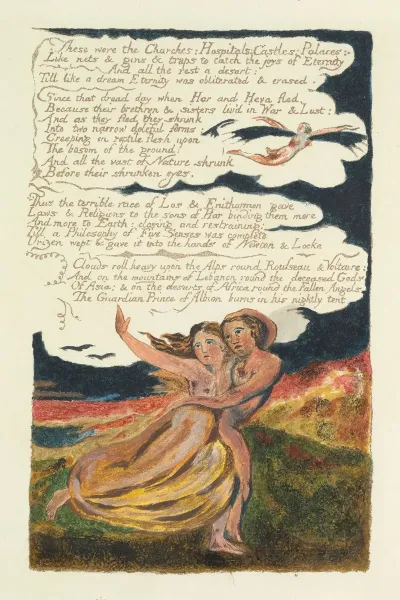 These were the Churches: Hospitals: Castles: Palaces:
Like nets & gins & traps to catch the joys of Eternity
And all the rest a desert:
Till like a dream Eternity was obliterated & erased.
Since that dread day when Har and Heva fled.
Because their brethren & sisters liv'd in War & Lust:
And as they fled they shrunk
Into two narrow doleful forms
Creeping in reptile flesh upon
The bosom of the ground:
And all the vast of Nature shrunk
Before their shrunken eyes.
Thus the terrible race of Los & Enitharmon gave
Laws & Religions to the sons of Har binding them more
And more to Earth: closing and restraining:
Till a Philosophy of Five Senses was complete
Urizen wept & gave it into the hands of Newton & Locke
Clouds roll heavy upon the Alps round Rousseau & Voltaire:
And on the mountains of Lebanon round the deceased Gods
Of Asia; & on the desarts of Africa round the Fallen Angels
The Guardian Prince of Albion burns in his nightly tent